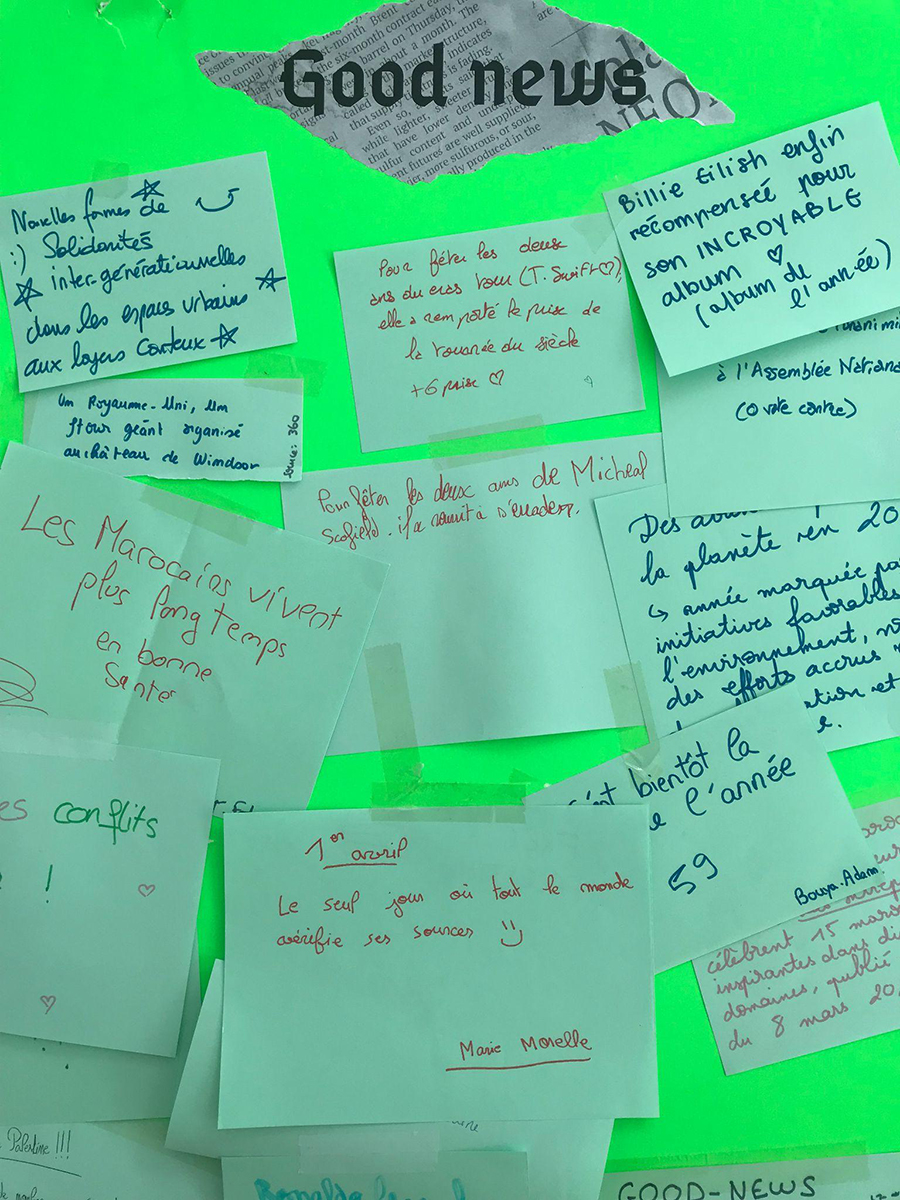 Good news
Nouvelles formes de
:) Solidarités
inter-générationnelles
dans les espaces urbains
aux loyers couteux
Pour fêter les deux
ans du eras tour (T. Swift♡),
elle a remporté le prix de
la tournée du siècle
+6 prix ♡
Billie Eilish enfin
récompensée pour
son INCROYABLE
album ♡
(album de
l'année)
à l'Assemblée Nationa
(0 vote contre)
Un Royaume-Uni, un
ftour géant organisé
au château de Windsor
source: 360
Pour fêter les deux ans de Micheal
Scofield. il a réussit à s'évader.
Les Marocains vivent
plus long temps
en bonne
Santé
la planète en 20
↳ année marquée pa
initiatives favorables
l'environnement,
des efforts accrus
ation et
es conflits
!
♡
♡
bientôt la
l'année
59
Bouya-Adam
1er avril
Le seul jour où tout le monde
vérifie ses sources
Marie Morelle
célèbrent 15 maro
inspirantes dans di
domaines, publié
du 8 mars 20
Palestine !!!
GOOD-NEWS